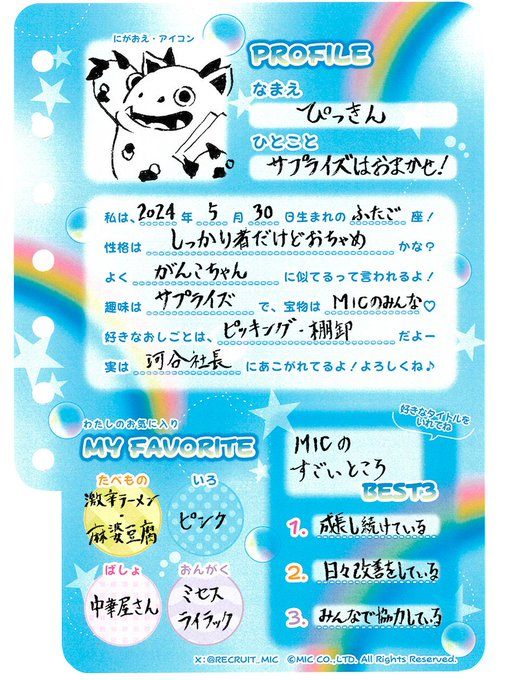 にがおえ・アイコン
PROFILE
なまえ
ぴっきん
ひとこと
サプライズはおまかせ!
私は、2024年 5月 30日生まれの ふたご 座!
性格は しっかり者だけどおちゃめ かな?
よく がんこちゃん に似てるって言われるよ!
趣味は サプライズ で、宝物は MICのみんな♡
好きなおしごとは、ピッキング・棚卸 だよー
実は 河合社長 にあこがれてるよ!よろしくね♪
わたしのお気に入り
MY FAVORITE
たべもの
激辛ラーメン
・
麻婆豆腐
いろ
ピンク
ばしょ
中華屋さん
おんがく
ミセス
ライラック
好きなタイトルを
いれてね
MICの
すごいところ
BEST3
1. 成長し続けている
2. 日々改善をしている
3. みんなで協力している
X:@RECRUIT_MIC ©MIC CO.,LTD. All Rights Reserved.